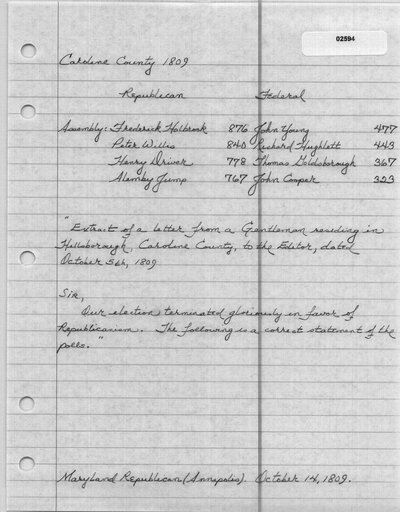 02594
Caroline County 1809
Republican Federal
Assembly: Frederick Holbrook 876 John Young 477
Peter Willis 840 Richard Hughlett 443
Henry Driver 778 Thomas Goldsborough 367
Alemby Jump 767 John Cooper 353
"Extract of a letter from a Gentleman residing in
Hillsborough, Caroline County, to the Editor, dated
October 5th, 1809
Sir,
Our election terminated gloriously in favor of
Republicanism. The following is a correct statement of the
polls."
Maryland Republican (Annapolis). October 14, 1809.